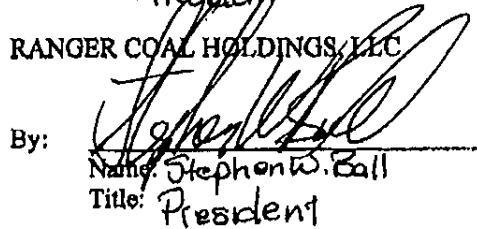 RANGER COAL HOLDINGS, LLC
By: Stephen W. Ball
Name: Stephen W. Ball
Title: President